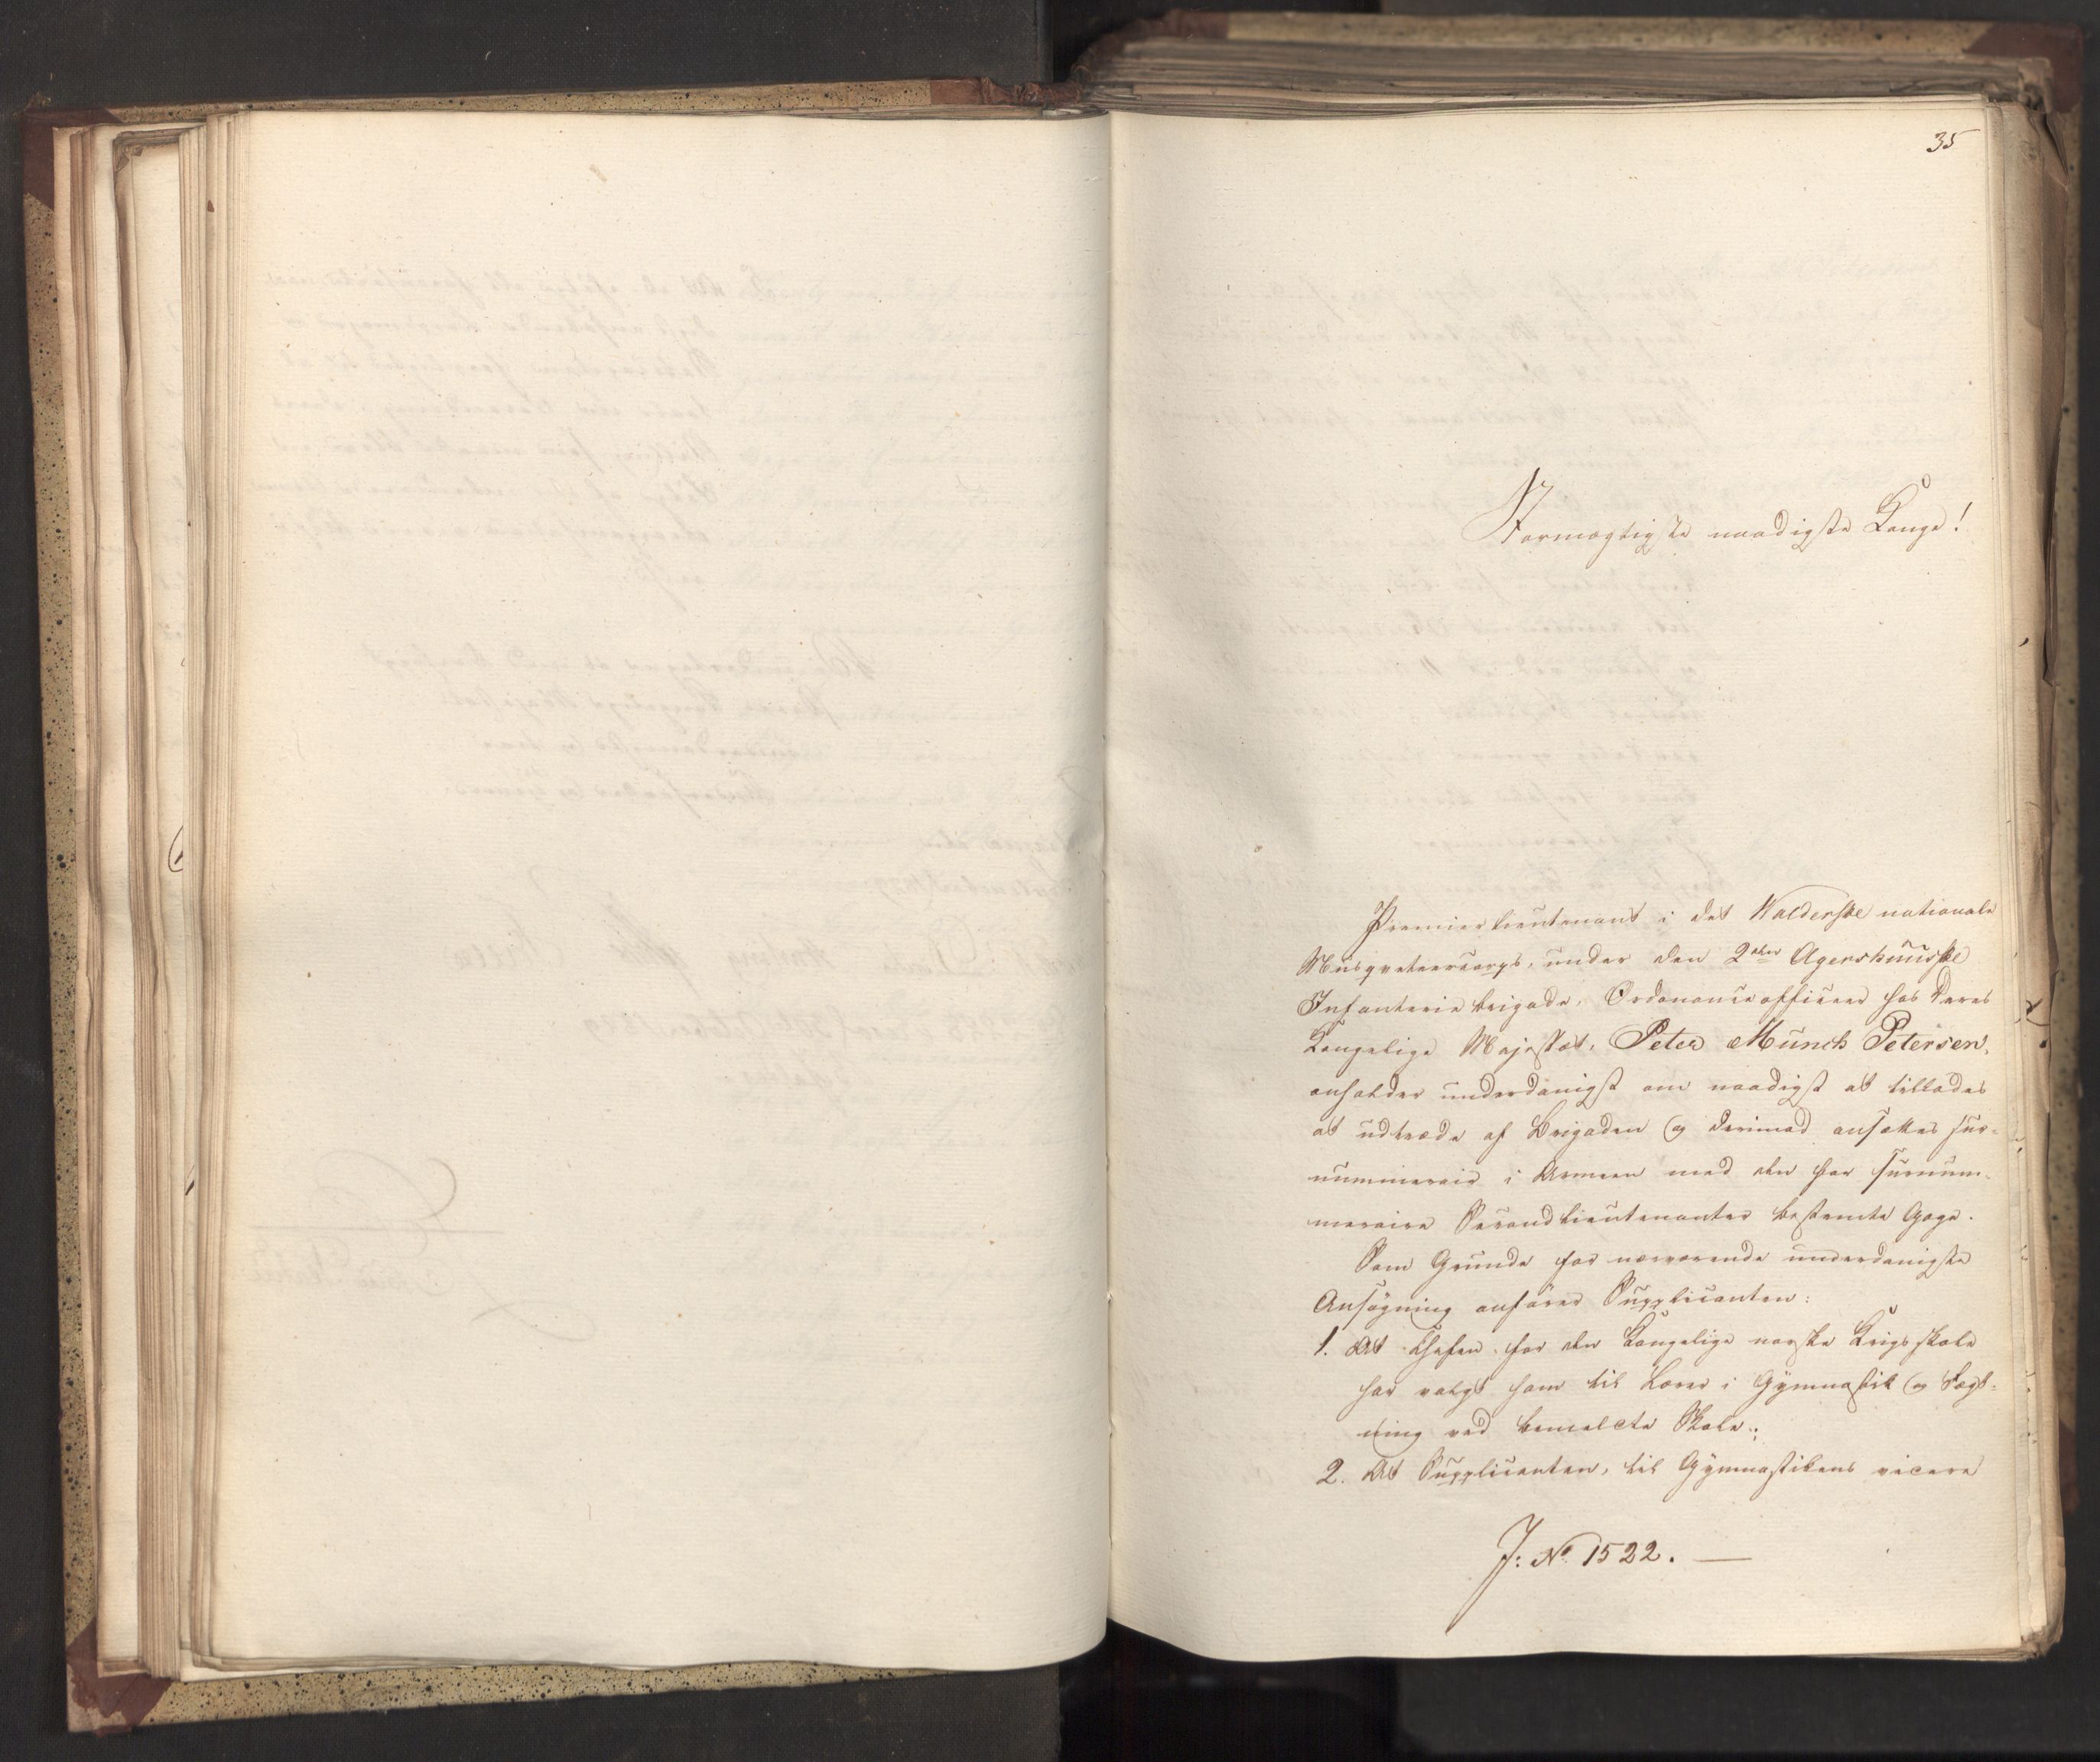 35
Stormægtigste naadigste Konge!
Premierlieutenant i det Walderske nationale
Musqveteercorps, under den 2den Agershuusske
Infanteriebrigade, Ordonanceofficeer hos Deres
Kongelige Majestæt, Peter Munch Petersen,
anholder underdanigst om naadigst at tillades
at udtræde af Brigaden og derimod ansættes sur-
nummerair i Armeen med den for surnum-
meraire Secondlieutenanter bestemte Gage.
Som Grunde for nærværende underdanigste
Ansøgning anfører Supplicanten:
1. At Chefen for den Kongelige norske Krigsskole
har valgt ham til Lærer i Gymnastik og Fægt-
ning ved bemeldte Skole;
2. At Supplicanten, til Gymnastikens videre
J: No 1522. —